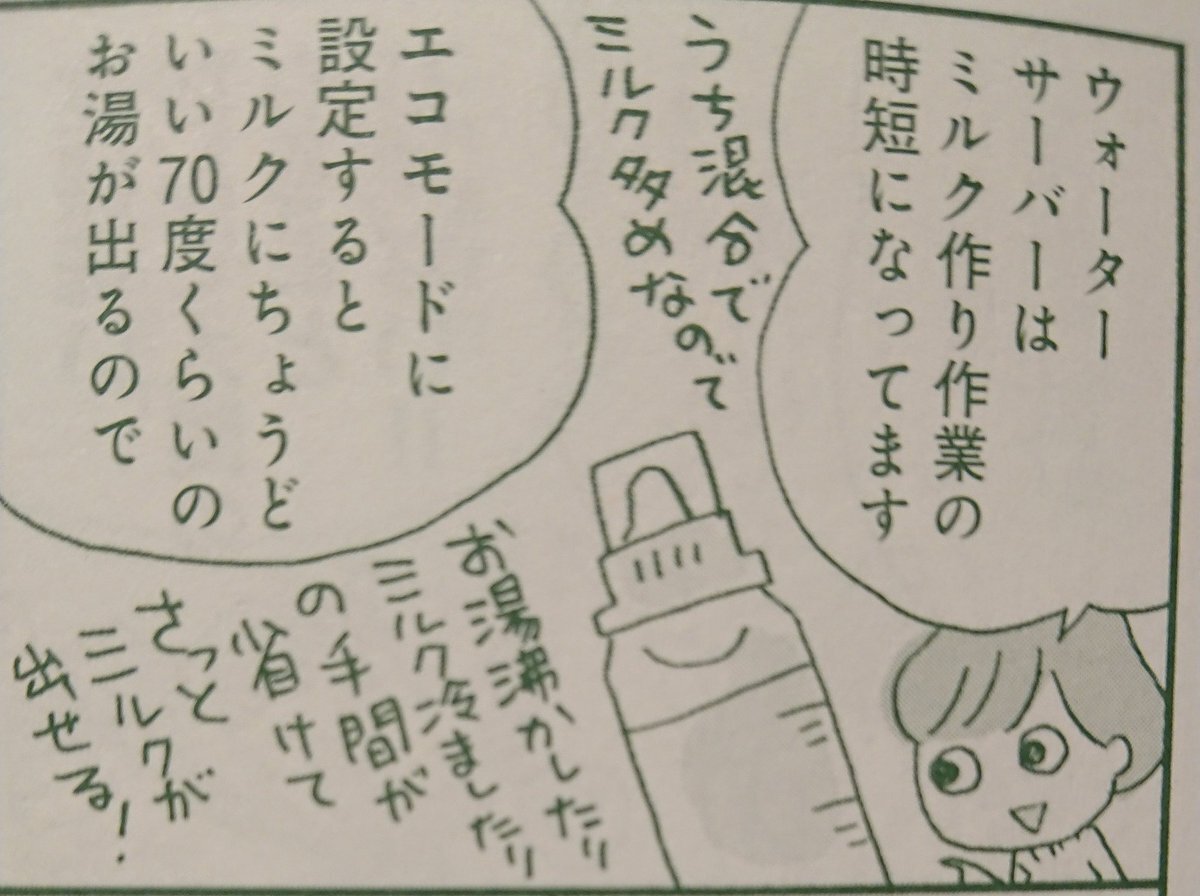 ウォーター
サーバーは
ミルク作り作業の
時短になってます
うち混合で
ミルク多めなので
エコモードに
設定すると
ミルクにちょうど
いい70度くらいの
お湯が出るので
お湯沸かしたり
ミルク冷ましたり
の手間が
省けて
さっと
ミルクが
出せる!